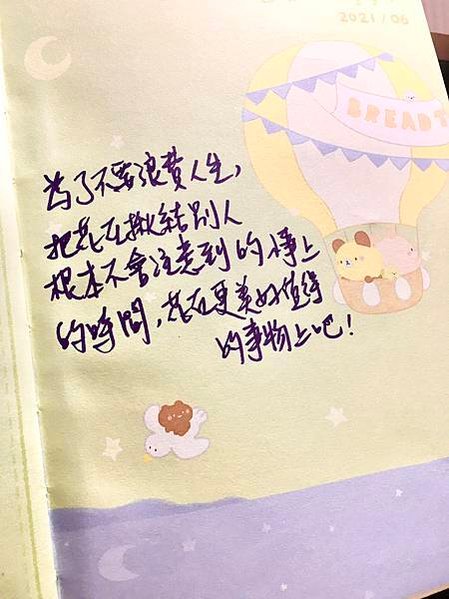 2021/06
BREAD T
為了不要浪費人生,
把花在揪結別人
根本不會注意到的事上
的時間,花在更美好值得
的事物上吧!